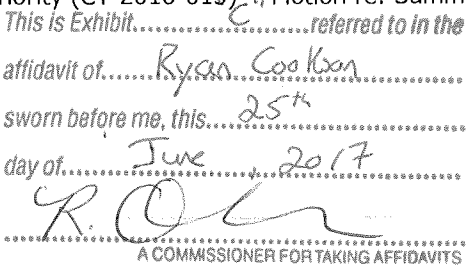 nority (CT-2016-015) Motion re: Summ
This is Exhibit......C......referred to in the
affidavit of......Ryan Cookson
sworn before me, this...25th
day of......June, 2017
A COMMISSIONER FOR TAKING AFFIDAVITS